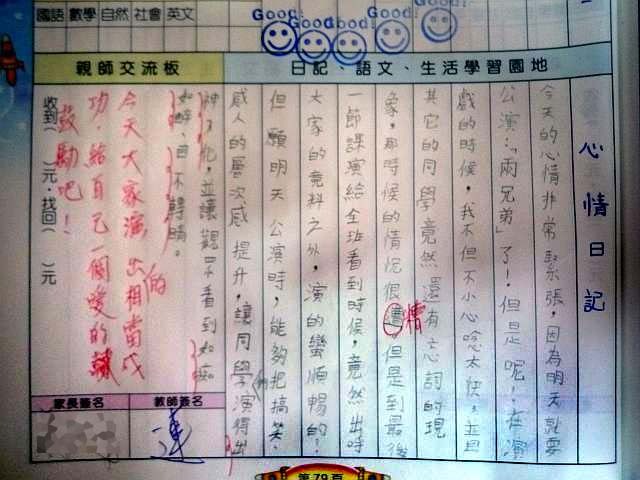 國語 數學 自然 社會 英文
Good! Good! Good! Good! Good!
親師交流板
日記、語文、生活學習園地
心情日記
今天的心情非常緊張，因為明天就要
公演：「兩兄弟」了！但是呢！在演
戲的時候，我不但不小心唸太快，並且
其它的同學竟然還有忘詞的現
象，那時候的情況很遭，但是到最後
糟
一節課演給全班看到時候，竟然出呼
大家的意料之外，演的蠻順暢的！
但願明天公演時，能夠把搞笑、
感人的層次感提升，讓同學們演得出
神入化，並讓觀眾看到如痴
如醉、目不轉睛。
今天大家演出相當成
功，給自己一個愛的
的
鼓勵吧！
收到（ ）元，找回（ ）元
家長簽名
教師簽名
連
第79頁